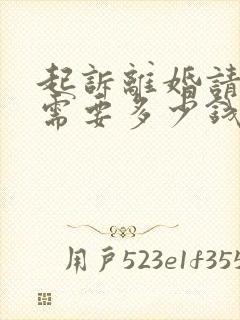 起訴離婚請
需要多少錢
用戶523e1f355